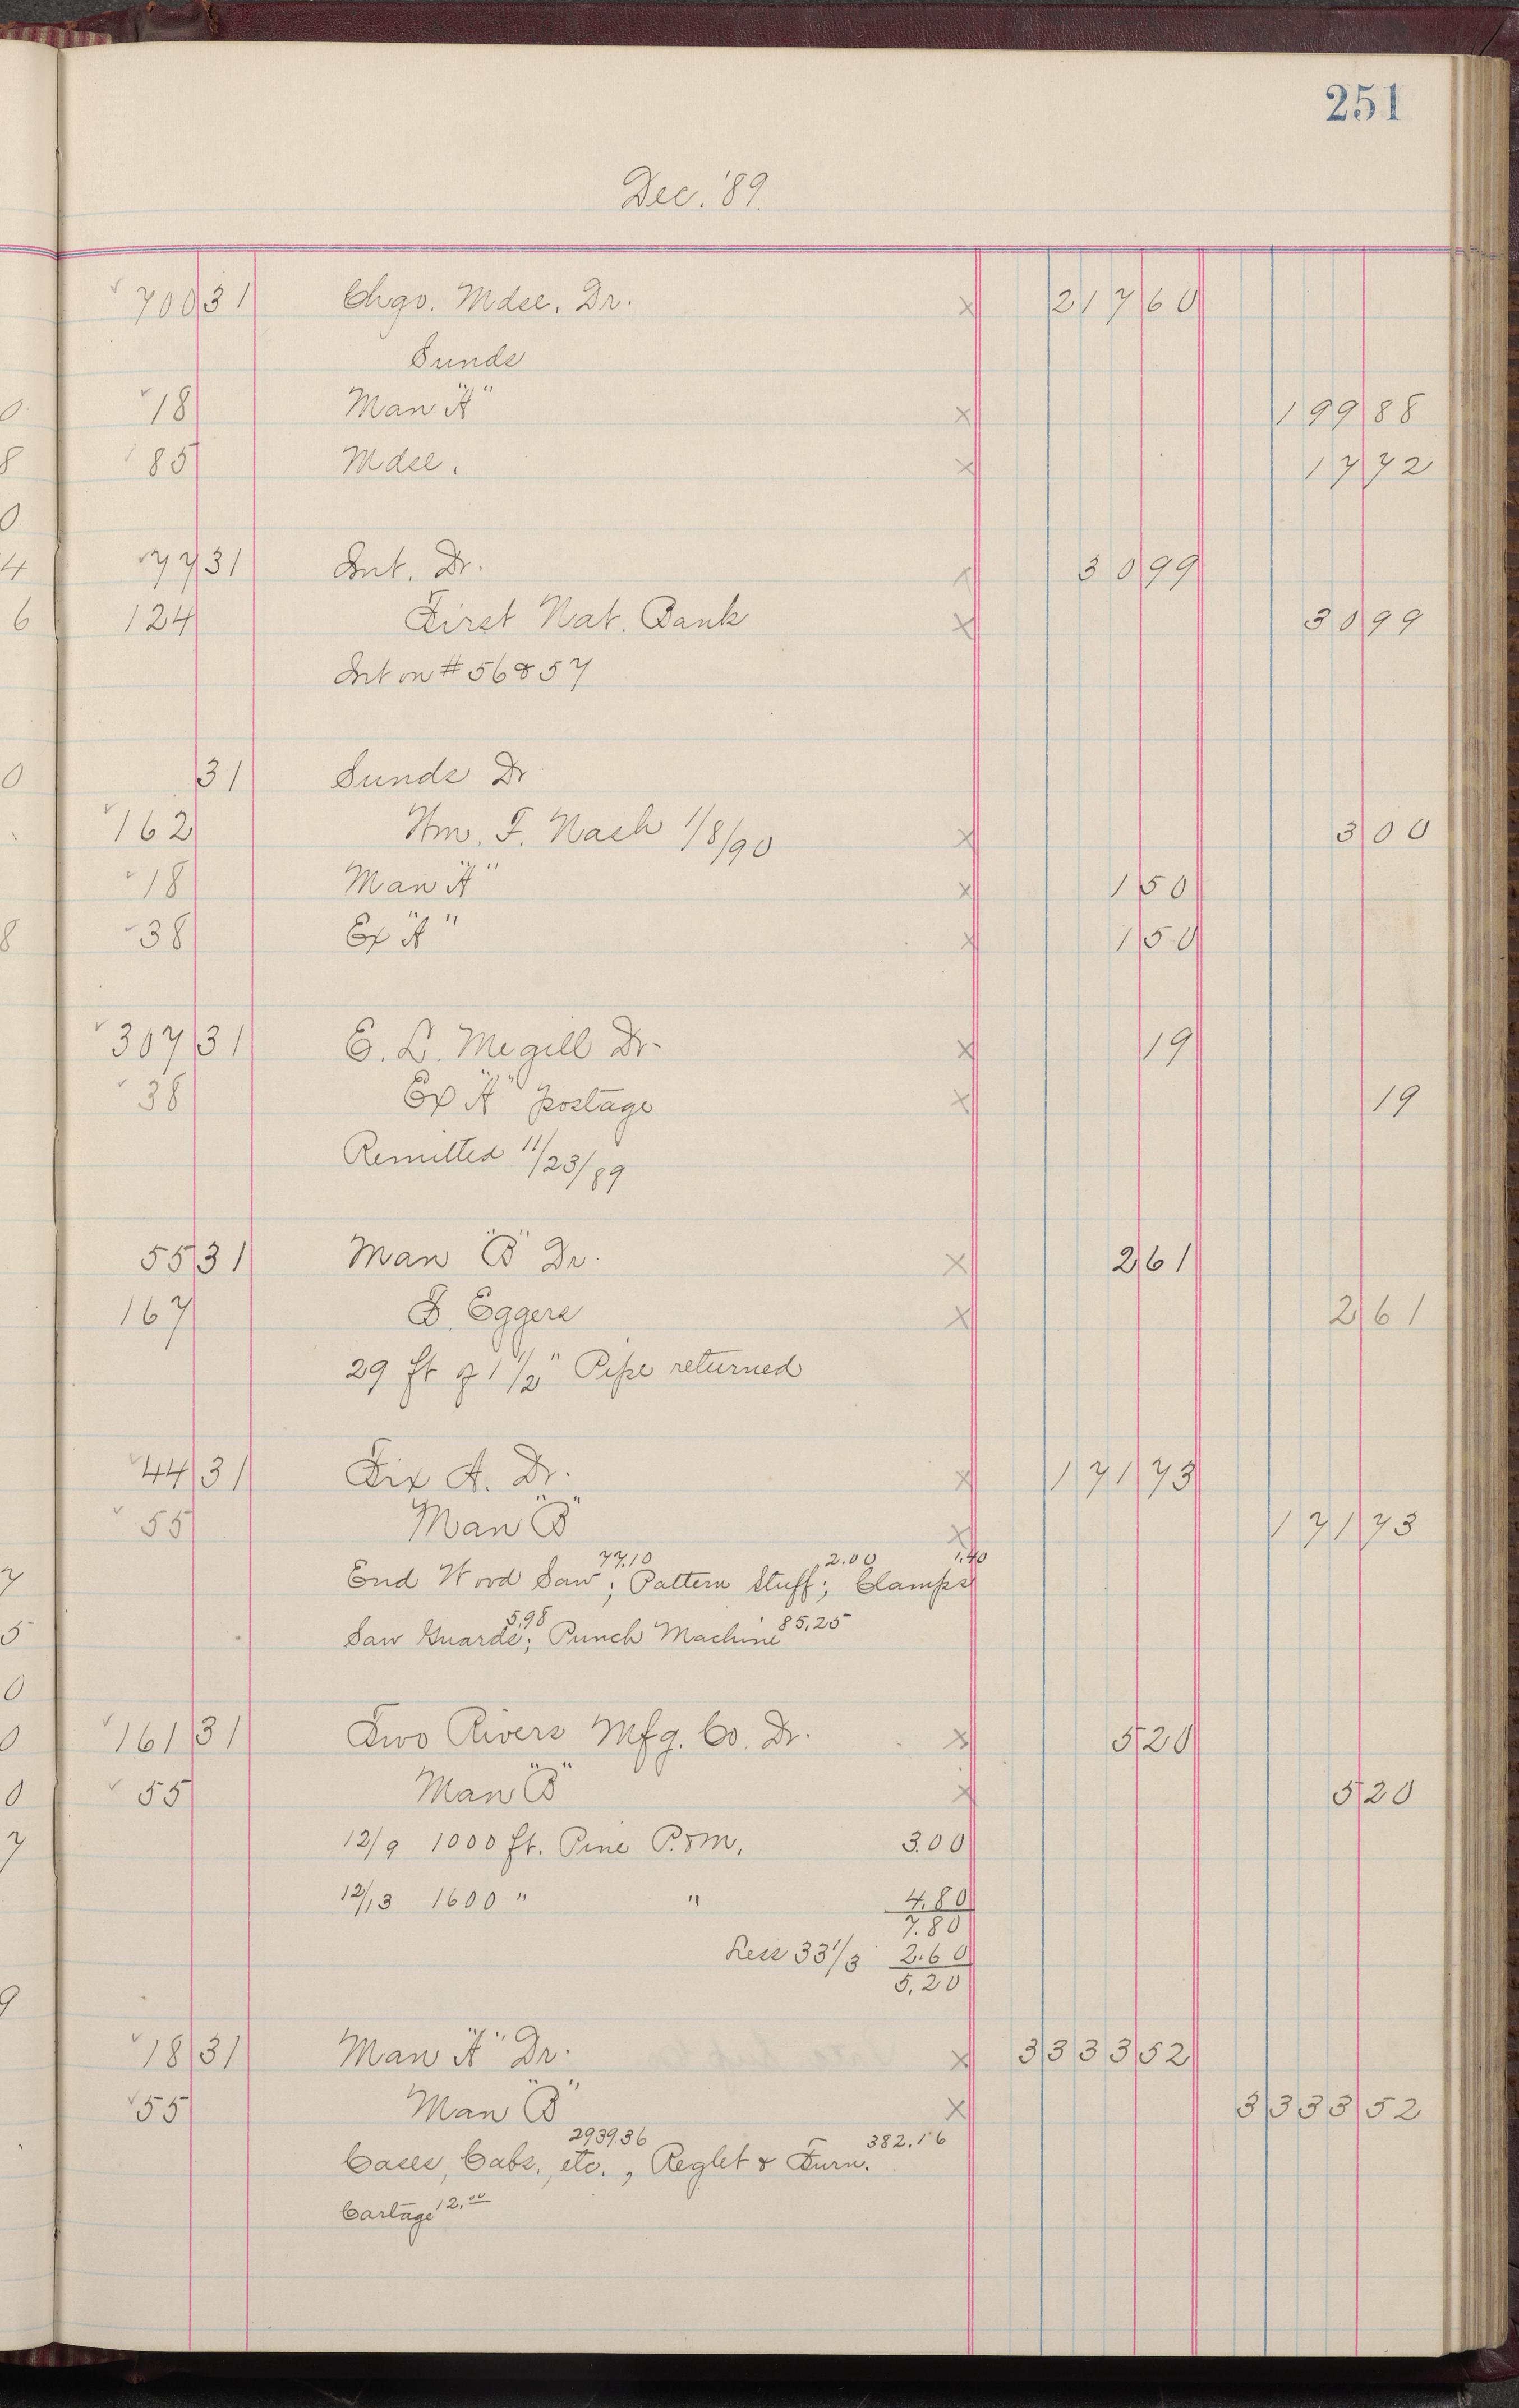 251
Dec. '89.
700 31 Chgo. Mdse. Dr. × 217 60
Sunds
18 Man "A" × 199 88
85 Mdse. × 17 72
77 31 Int. Dr. × 30 99
124 First Nat. Bank × 30 99
Int on # 56 & 57
31 Sunds Dr
162 Wm. F. Nash 1/8/90 × 3 00
18 Man "A" × 1 50
38 Ex "A" × 1 50
307 31 E. L. Megill Dr. × 19
38 Ex "A" postage × 19
Remitted 11/23/89
55 31 Man "B" Dr. × 2 61
167 F. Eggers × 2 61
29 ft of 1 1/2" Pipe returned
44 31 Fix A. Dr. × 171 73
55 Man "B" × 171 73
77.10 2.00 1.40
End Wood Saw; Pattern Stuff; Clamps
5.98 85.25
Saw Guards; Punch Machine
161 31 Two Rivers Mfg. Co. Dr. × 5 20
55 Man "B" × 5 20
12/9 1000 ft. Pine P. & M. 3.00
12/13 1600 " " 4.80
7.80
Less 33 1/3 2.60
5.20
18 31 Man "A" Dr. × 3333 52
55 Man "B" × 3333 52
2939.36 382.16
Cases, Cabs. etc., Reglet & Furn.
Cartage 12.00